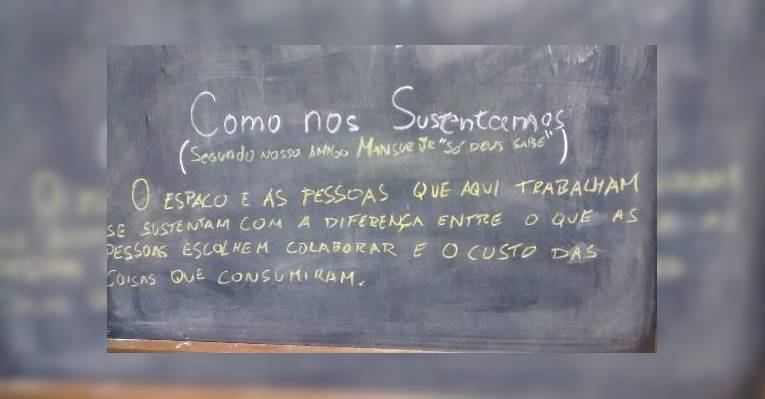 Como nos Sustentamos
(Segundo nosso amigo Mansur Jr "Só Deus sabe")
O ESPAÇO E AS PESSOAS QUE AQUI TRABALHAM
SE SUSTENTAM COM A DIFERENÇA ENTRE O QUE AS
PESSOAS ESCOLHEM COLABORAR E O CUSTO DAS
COISAS QUE CONSUMIRAM.